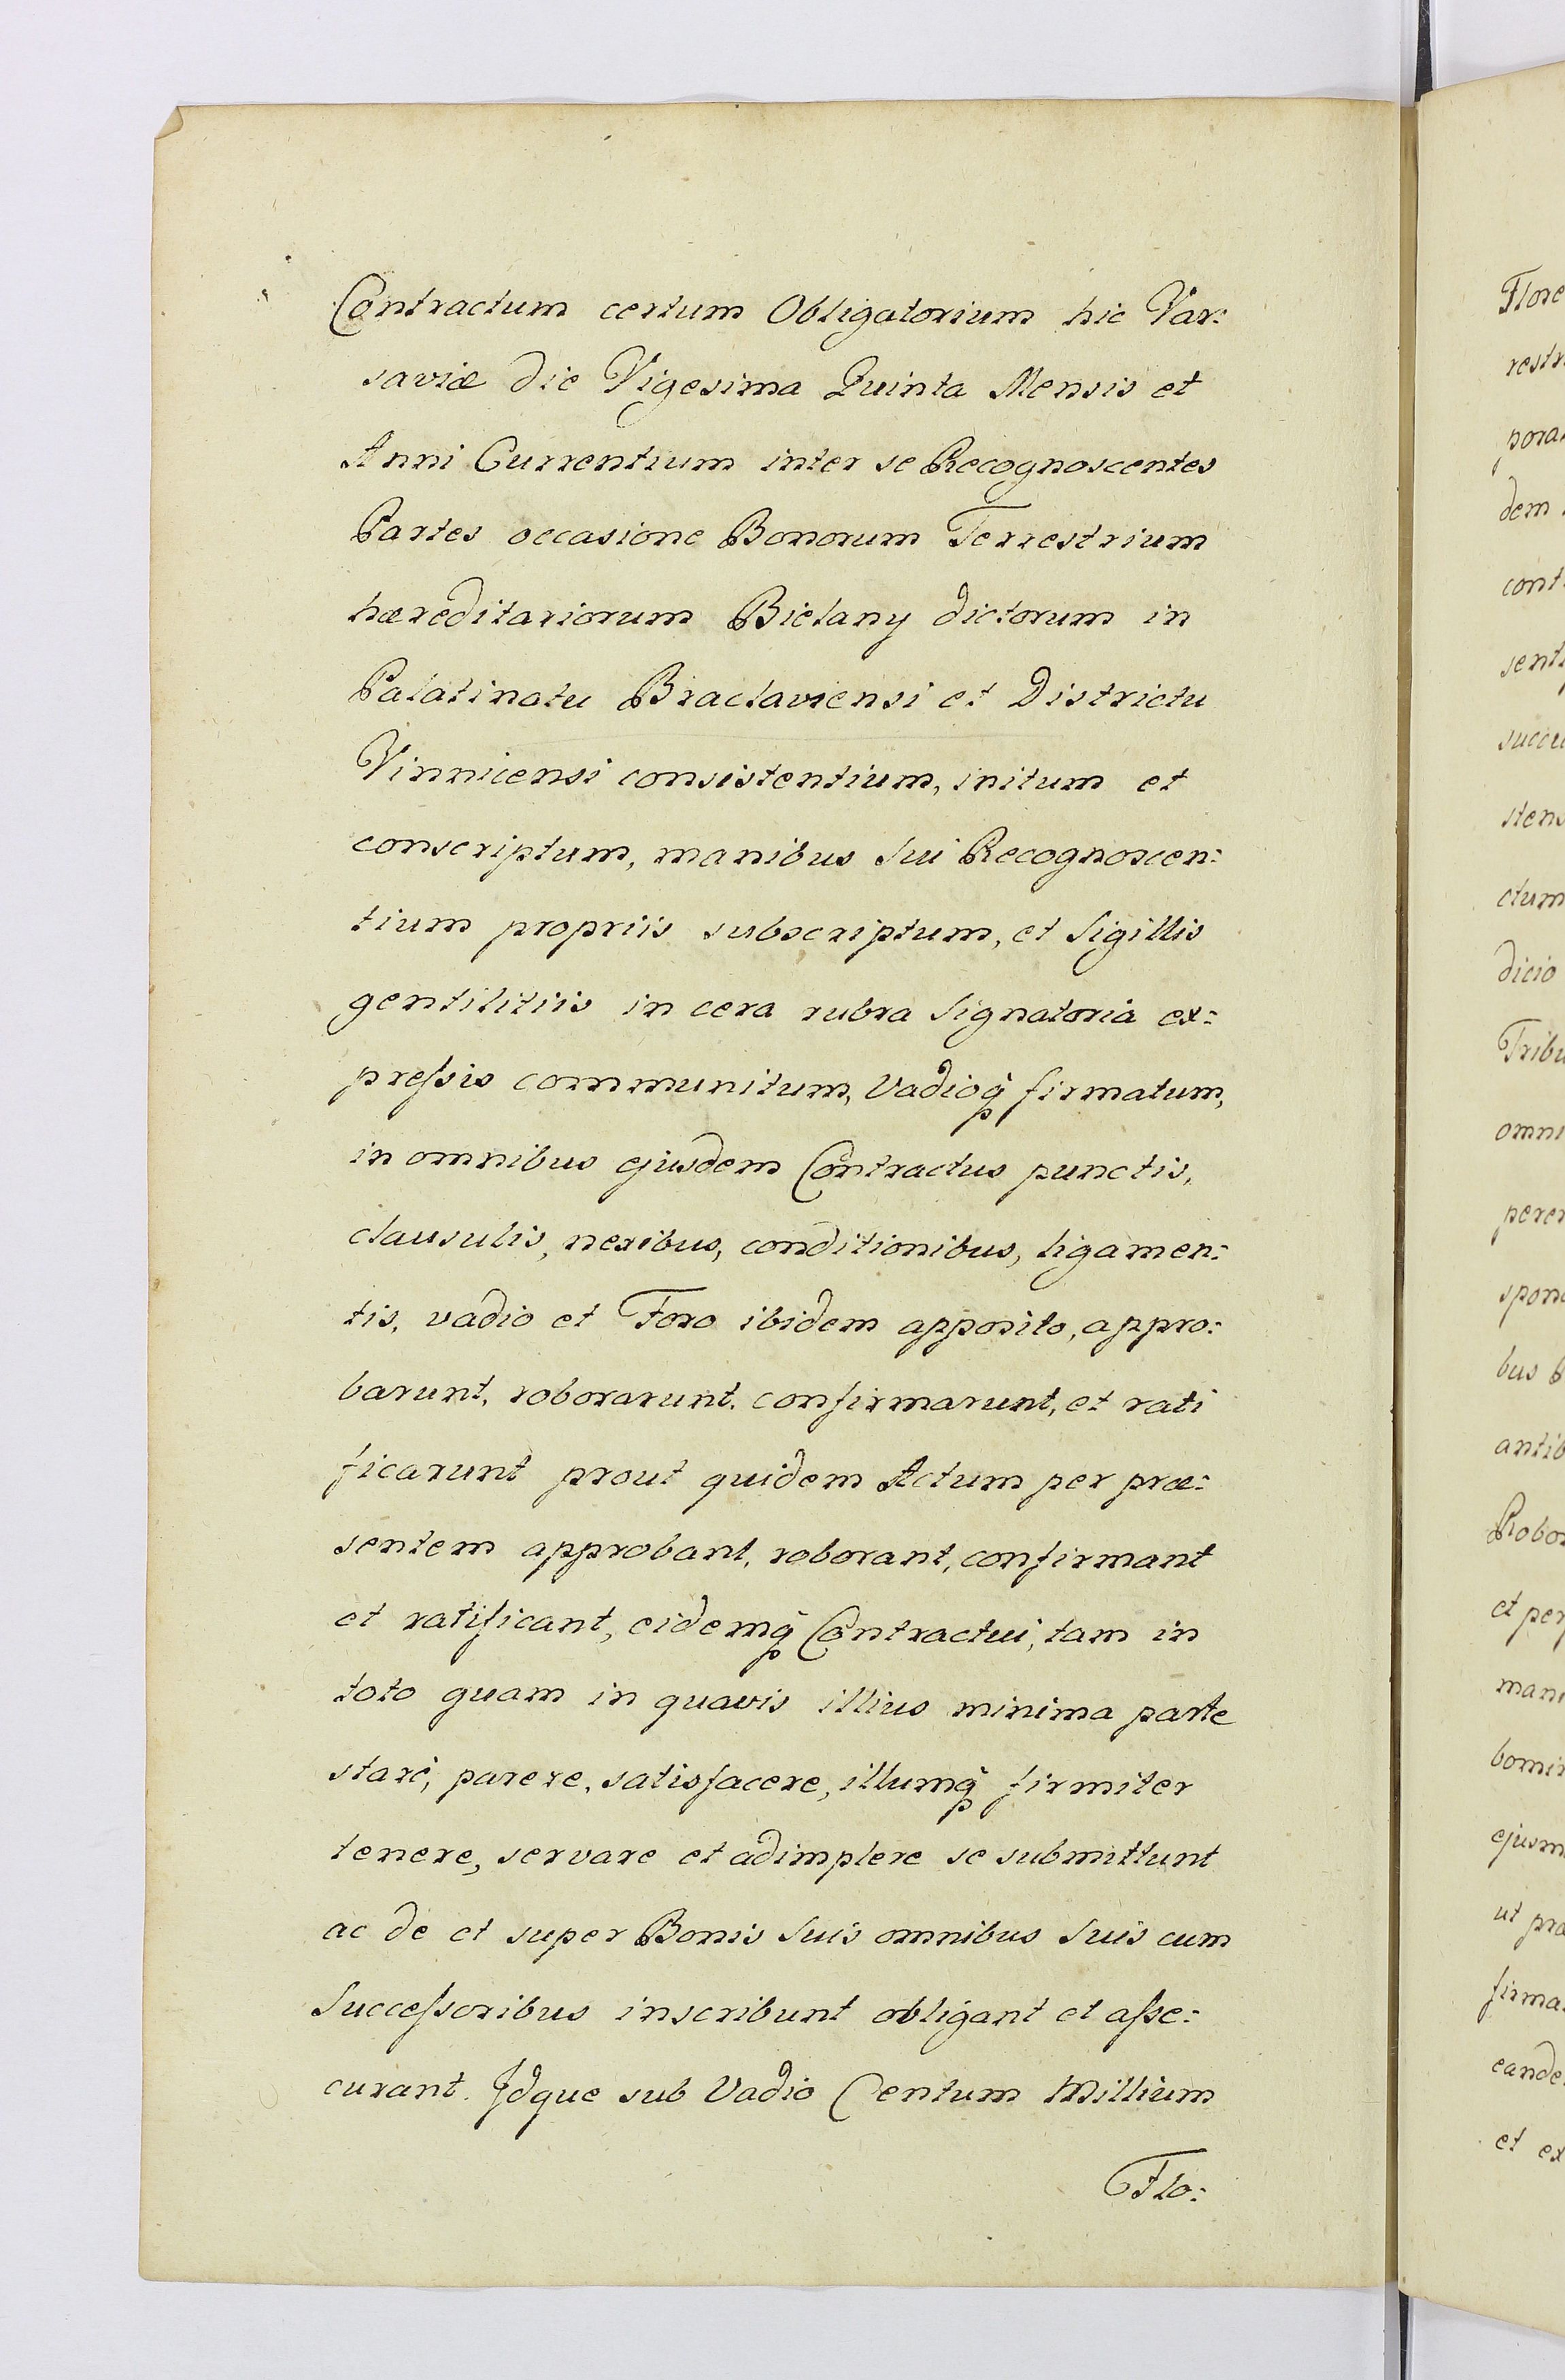 Contractum certum Obligatorium hic Var:
saviæ die Vigesima Quinta Mensis et
Anni Currentium inter se Recognoscentes
Partes occasione Bonorum Terrestrium
hæreditariorum Bielany dictorum in
Palatinatu Braclaviensi et Districtu
Vinnicensi consistentium, initum et
conscriptum, manibus Sui Recognoscen:
tium propriis subscriptum, et Sigillis
gentilitiis in cera rubra Signatoria ex:
preſsis communitum, Vadioq̨ firmatum,
in omnibus ejusdem Contractus punctis,
clausulis, nexibus, conditionibus, ligamen:
tis, vadio et Foro ibidem apposito, appro:
barunt, roborarunt, confirmarunt, et rati
ficarunt prout quidem Actum per præ:
sentem approbant, roborant, confirmant
et ratificant, eidemq̨ Contractui, tam in
toto quam in quavis illius minima parte
stare, parere, satisfacere, illumq̨ firmiter
tenere, servare et adimplere se submittunt
ac de et super Bonis Suis omnibus Suis cum
Succeſsoribus inscribunt obligant et aſse:
curant. Idque sub Vadio Centum Millium
Flo:
Flore
restr
pora
dem
cont
senti
succe
stens
ctum
dicio
Tribu
omni
perem
spond
bus
antib
Robor
et per
mani
bomin
ejusm
ut præ
firma
eande
et ex